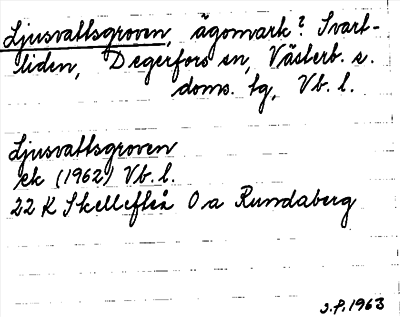 Ljusvattsgroven, ägomark? Svart-
liden, Degerfors sn, Västerb. s.
doms. tg, Vb. l.
Ljusvattsgroven
ek (1962) Vb. l.
22 K Skellefteå O a Rundaberg
J.P. 1963